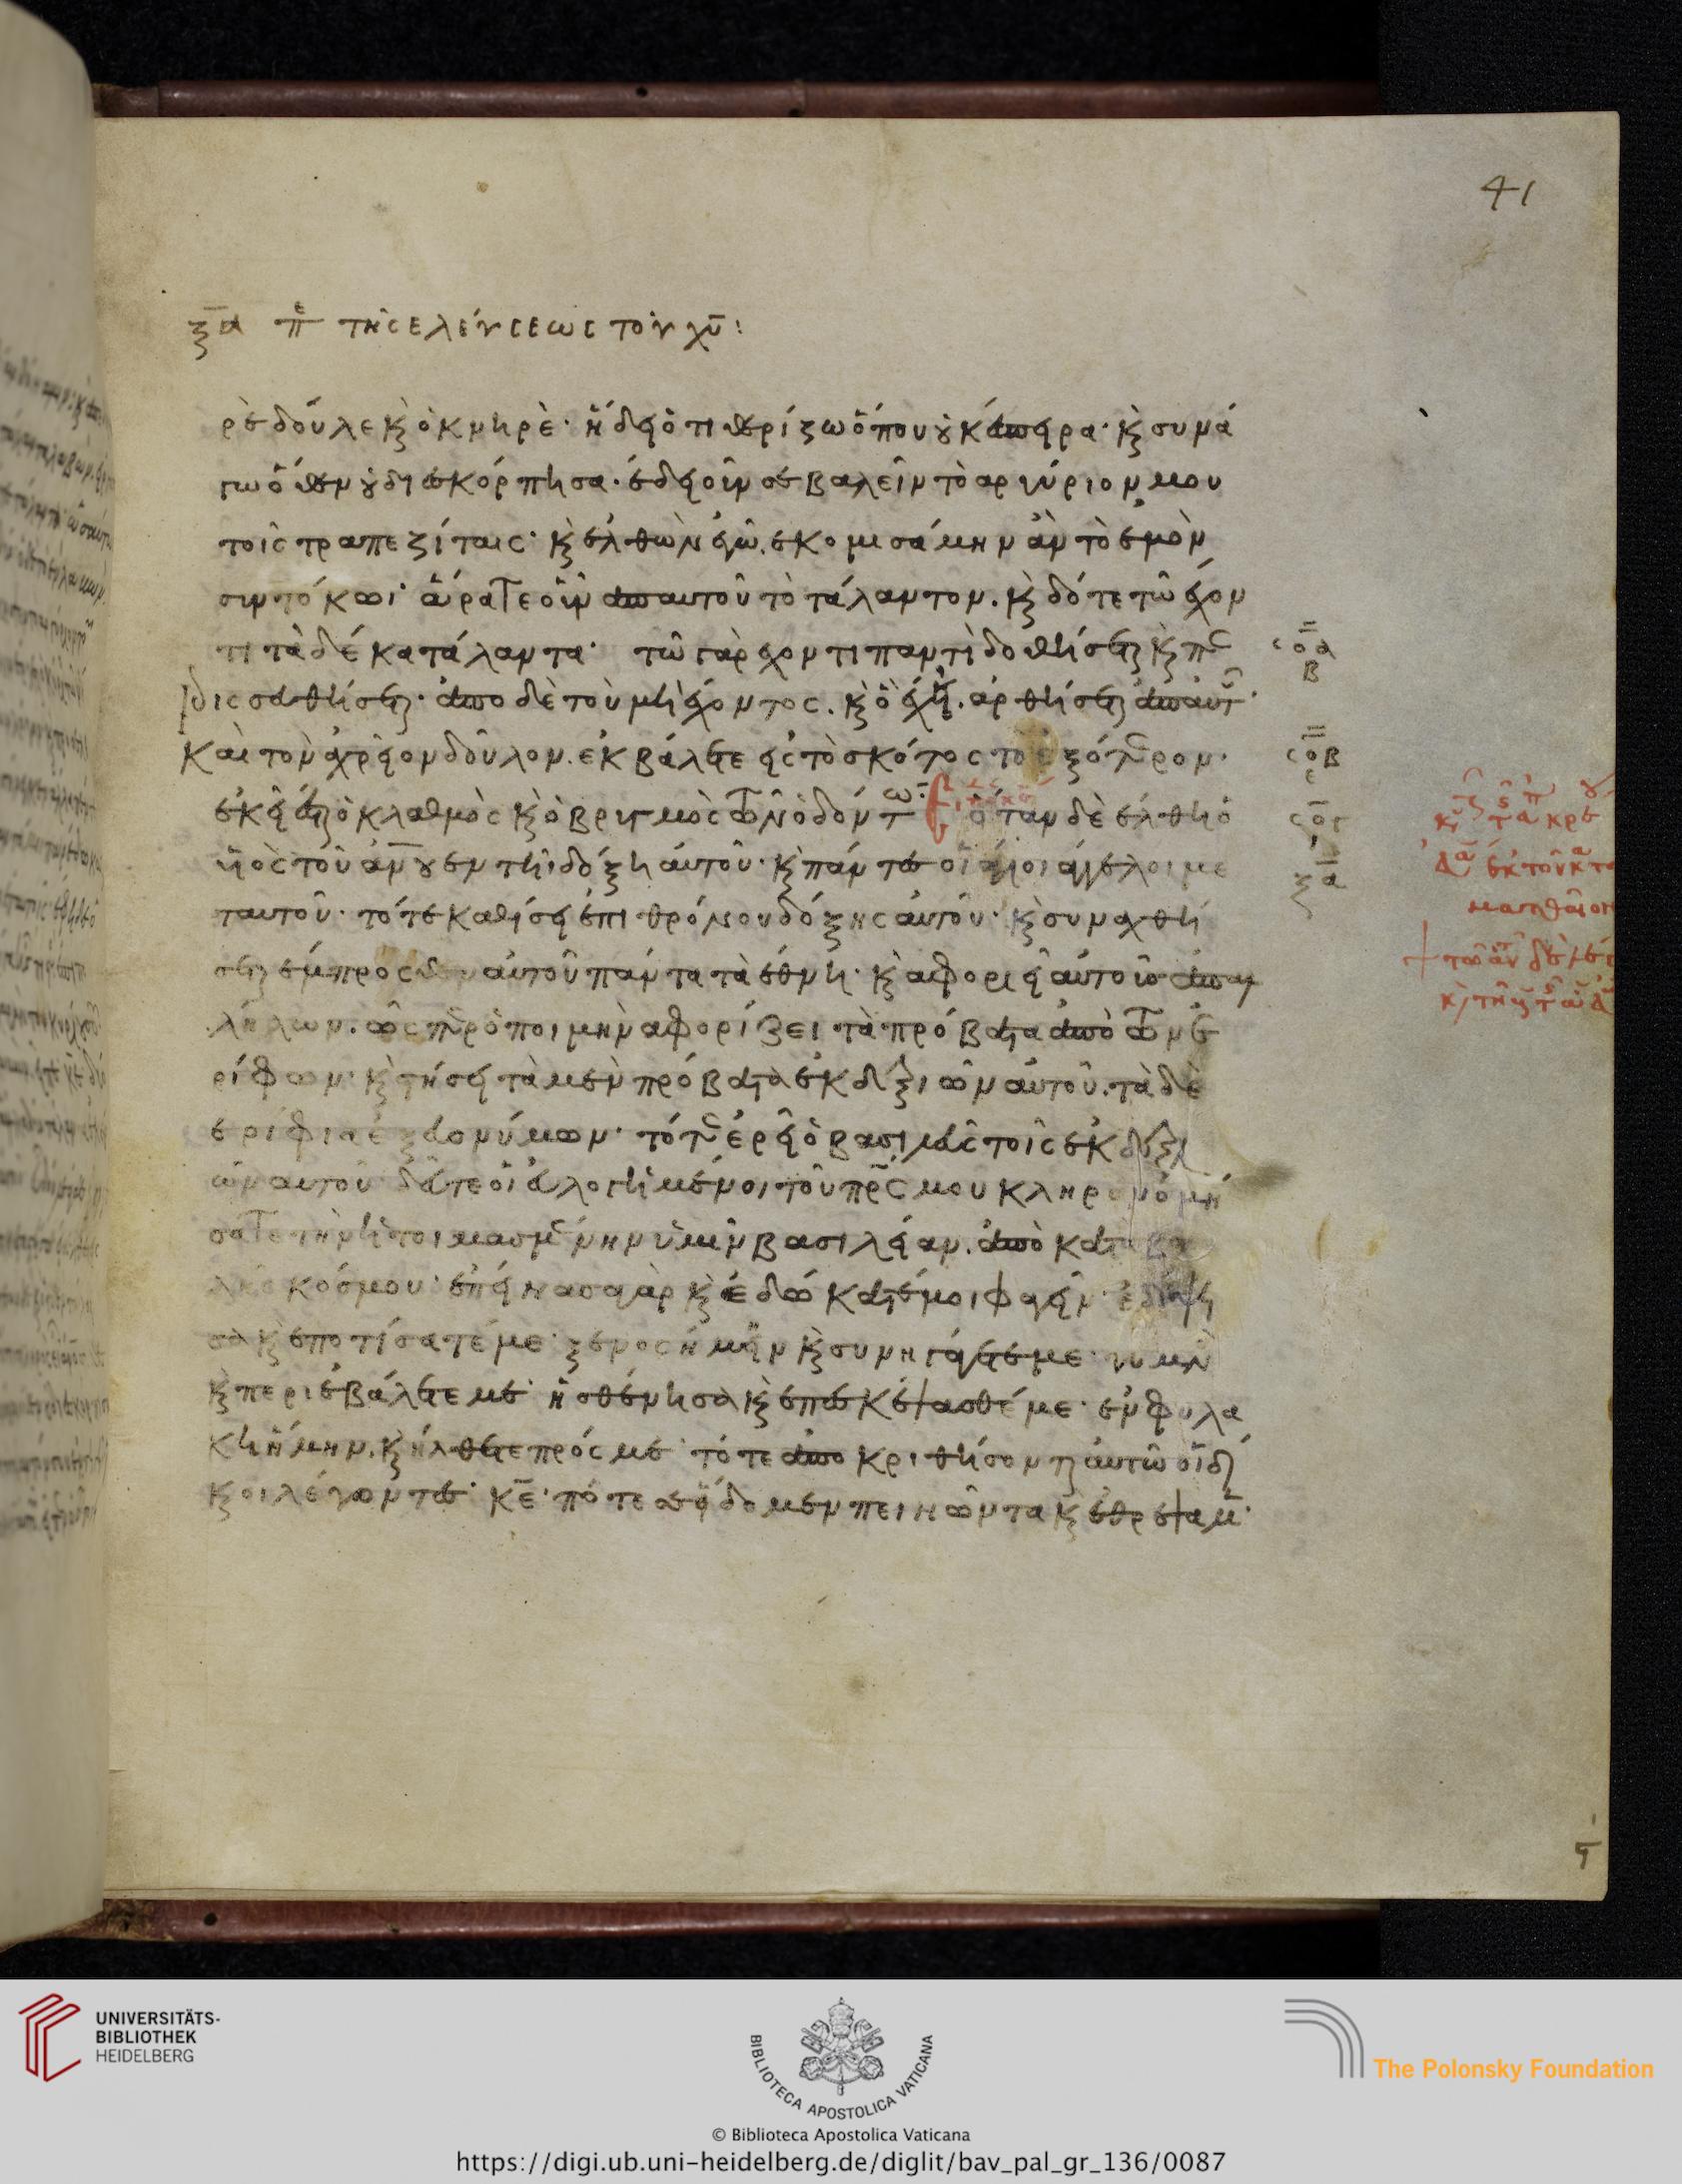 41
ξα πε τῆς ἐλεύσεως τοῦ χυ:
ρὲ δοῦλε κ ὀκνηρὲ· ἤδεις ὅτι θερίζω ὅπου οὐκ ἔσπειρα· κ συνά
γω ὅθεν οὐ διεσκόρπησα· ἔδει οὖν σε βαλεῖν τὸ ἀργύριον μου
τοῖς τραπεζίταις· κ ἐλθὼν ἐγὼ. ἐκομισάμην ἂν τὸ ἐμὸν
σὺν τόκωι· ἄρατε οὖν ἀπ αὐτοῦ τὸ τάλαντον. κ δότε τῶ ἔχον
τι τὰ δέκα τάλαντα· τῶ γὰρ ἔχοντι παντὶ δοθήσεται κ περ
ισσευθήσεται. ἀπο δὲ τοῦ μὴ ἔχοντος. κ ὃ ἔχει. ἀρθήσεται ἀπ αὐτ·
Καὶ τὸν ἀχρεῖον δοῦλον. ἐκβάλετε εἰς τὸ σκότος τὸ ἐξότερον·
ἐκεῖ ἔσται ὁ κλαθμὸς κ ὁ βρυγμὸς τῶν ὀδόντ ω: ὅταν δὲ ἔλθη ὁ
υἱὸς τοῦ ἀνου ἐν τῆ δόξη αὐτοῦ· κ πάντες οἱ ἅγιοι ἄγγελοι με
ταυτοῦ· τότε καθίσει ἐπι θρόνου δόξης αὐτοῦ· κ συναχθή
σεται ἔμπροσθεν αὐτοῦ πάντα τὰ ἔθνη· κ ἀφοριεῖ αὐτοὺς ἀπαλ
λήλων. ὥσπερ ὁ ποιμὴν ἀφορίζει τὰ πρόβατα ἀπὸ τῶν ἐ
ρίφων· κ στήσει τὰ μὲν πρόβατα ἐκ δεξιῶν αὐτοῦ. τὰ δὲ
ἐρίφια ἐξ εὐονύμων· τότε ἐρεῖ ὁ βασιλεὺς τοῖς ἐκ δεξι
ῶν αὐτοῦ· δεῦτε οἱ εὐλογημένοι τοῦ πρς μου κληρονομή
σατε τὴν ἡτοιμασμένην ὑμῖν βασιλείαν. ἀπὸ καταβο
λῆς κόσμου· ἐπείνασα γὰρ κ ἐδώκατέ μοι φαγεῖν· ἐδίψη
σα κ ἐποτίσατέ με· ξένος ἤμην κ συνηγάγετέ με· γυμνὸς
κ περιεβάλετε με· ἠσθένησα κ ἐπεσκέψασθέ με· ἐν φυλα
κῆ ἤμην. κ ἤλθετε πρός με· τότε ἀποκριθήσονται αὐτῶ οἱ δί
κοι λέγοντες· κε· πότε σε εἴδομεν πεινῶντα κ ἐθρέψαμεν·
σοα
β
σοβ
ε
σογ
ι
ξα
UNIVERSITÄTS-
BIBLIOTHEK
HEIDELBERG
BIBLIOTECA APOSTOLICA VATICANA
The Polonsky Foundation
© Biblioteca Apostolica Vaticana
https://digi.ub.uni-heidelberg.de/diglit/bav_pal_gr_136/0087